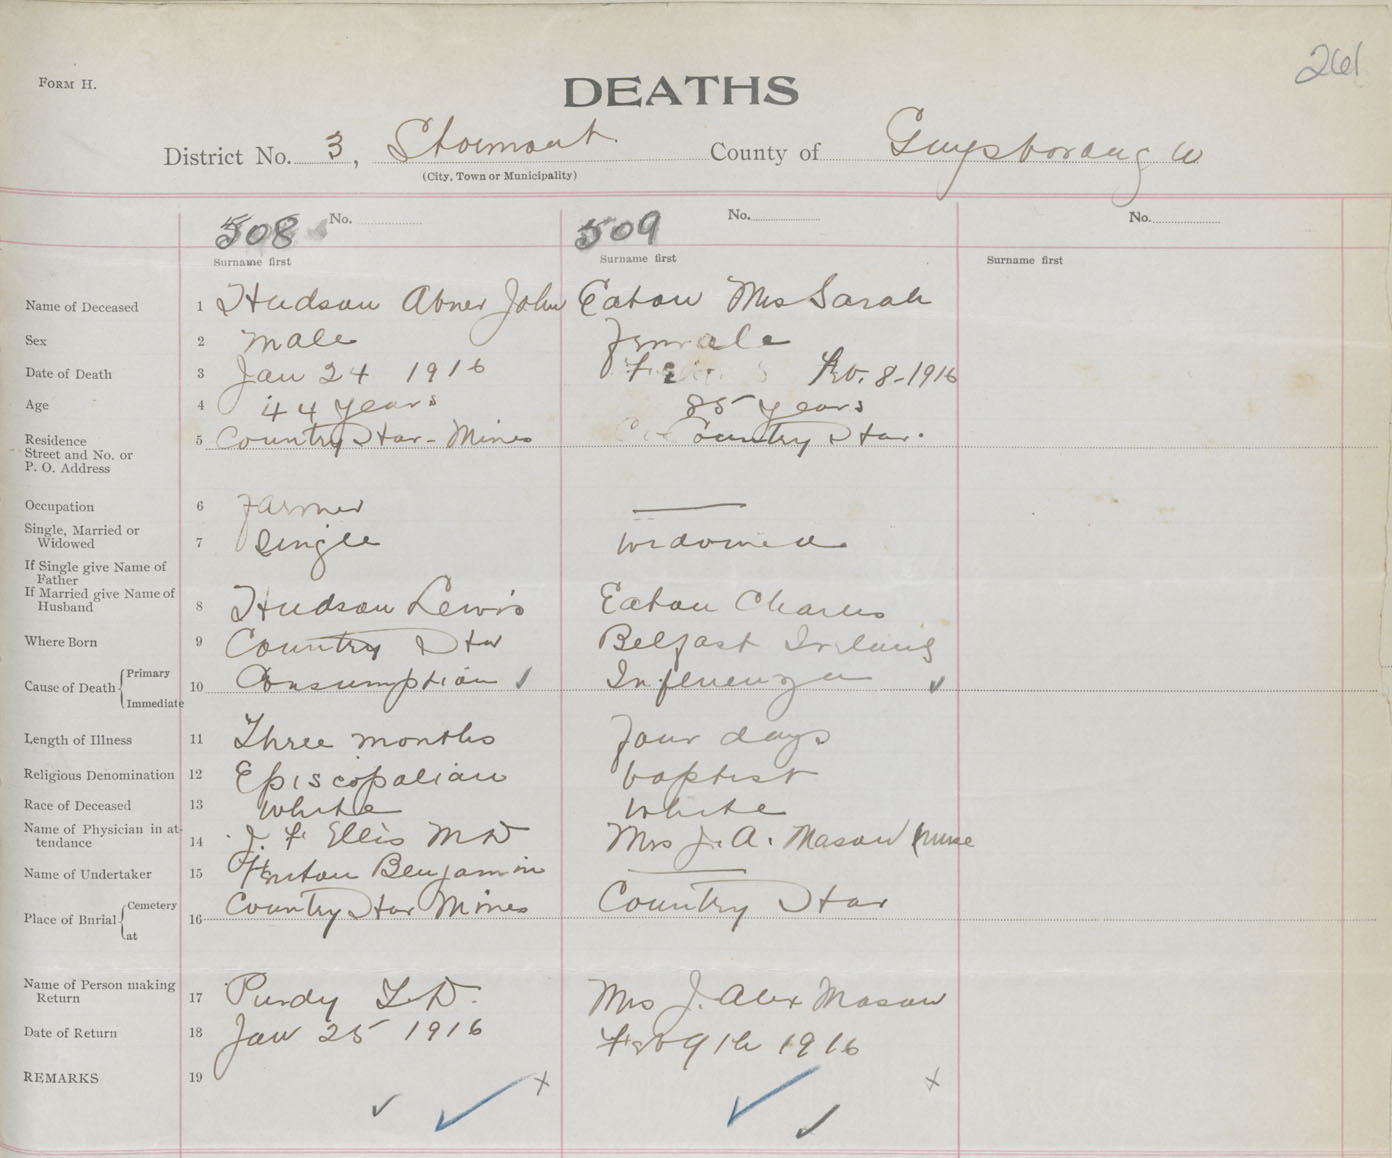 261
FORM H.
DEATHS
District No. 3, Stormont County of Guysboroug w
(City, Town or Municipality)
508 No. 509 No. No.
Surname first Surname first Surname first
Name of Deceased 1 Hudson Abner John Eaton Mrs Sarah
Sex 2 male female
Date of Death 3 Jan 24 1916 Feb. 8-1916
Age 4 44 years 85 years
Residence 5 Country Har-Mines Country Har.
Street and No. or
P. O. Address
Occupation 6 farmer —
Single, Married or
Widowed 7 Single widowed
If Single give Name of
Father
If Married give Name of
Husband 8 Hudson Lewis Eaton Charles
Where Born 9 Country Har Belfast Ireland
Cause of Death { Primary
10 Consumption ✓ Influenza ✓
Immediate
Length of Illness 11 Three months four days
Religious Denomination 12 Episcopalian baptist
Race of Deceased 13 white white
Name of Physician in at-
tendance 14 J. F Ellis MD Mrs J. A. Mason nurse
Name of Undertaker 15 Fenton Benjamin —
Place of Burial { Cemetery
16 Country Har Mines Country Har
at
Name of Person making
Return 17 Purdy L D. Mrs J. Alex Mason
Date of Return 18 Jan 25 1916 Feb 9th 1916
REMARKS 19 x x
✓ ✓ ✓ ✓